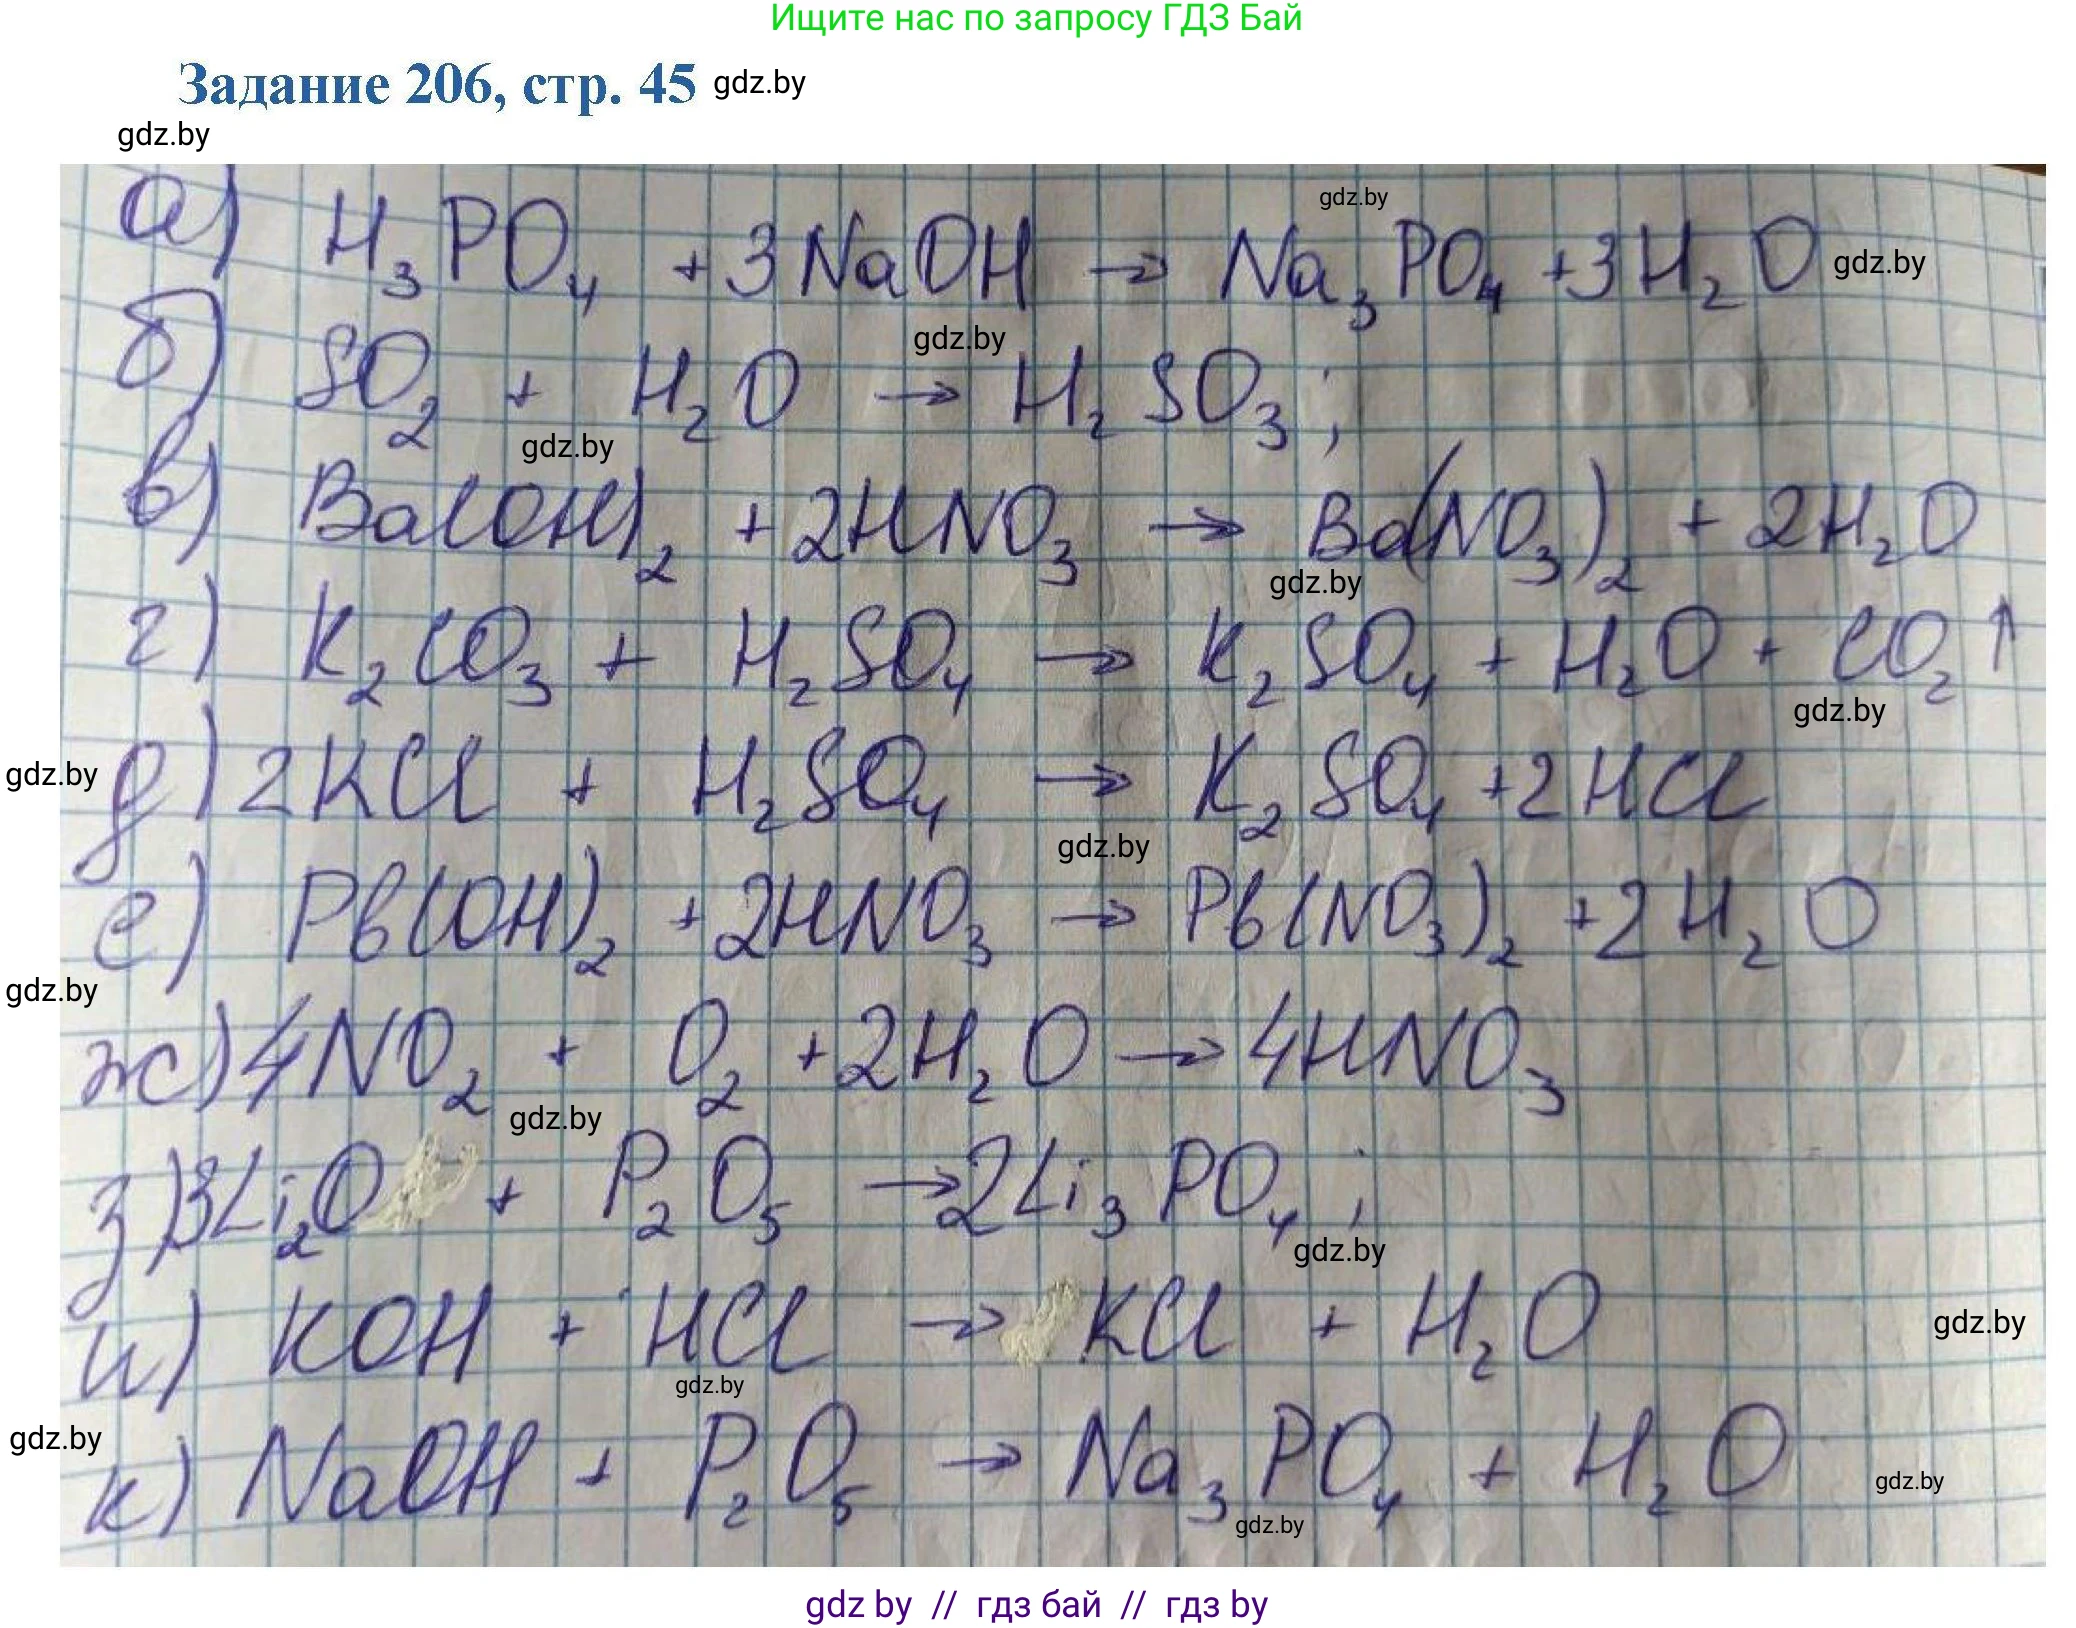 Ищите нас по запросу ГДЗ Бай
Задание 206, стр. 45 gdz.by
gdz.by
gdz.by
а) H₃PO₄ + 3NaOH → Na₃PO₄ + 3H₂O gdz.by
gdz.by
б) SO₂ + H₂O → H₂SO₃;
gdz.by
в) Ba(OH)₂ + 2HNO₃ → Ba(NO₃)₂ + 2H₂O
gdz.by
г) K₂CO₃ + H₂SO₄ → K₂SO₄ + H₂O + CO₂↑
gdz.by
gdz.by
д) 2KCl + H₂SO₄ → K₂SO₄ + 2HCl
gdz.by
е) Pb(OH)₂ + 2HNO₃ → Pb(NO₃)₂ + 2H₂O
gdz.by
ж) 4NO₂ + O₂ + 2H₂O → 4HNO₃
gdz.by
з) 3Li₂O + P₂O₅ → 2Li₃PO₄;
gdz.by
и) KOH + HCl → KCl + H₂O
gdz.by
gdz.by
gdz.by
к) NaOH + P₂O₅ → Na₃PO₄ + H₂O
gdz.by
gdz.by
gdz by // гдз бай // гдз by